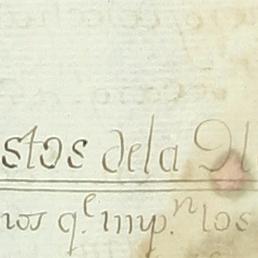 stos dela
nos q.e imp.n los